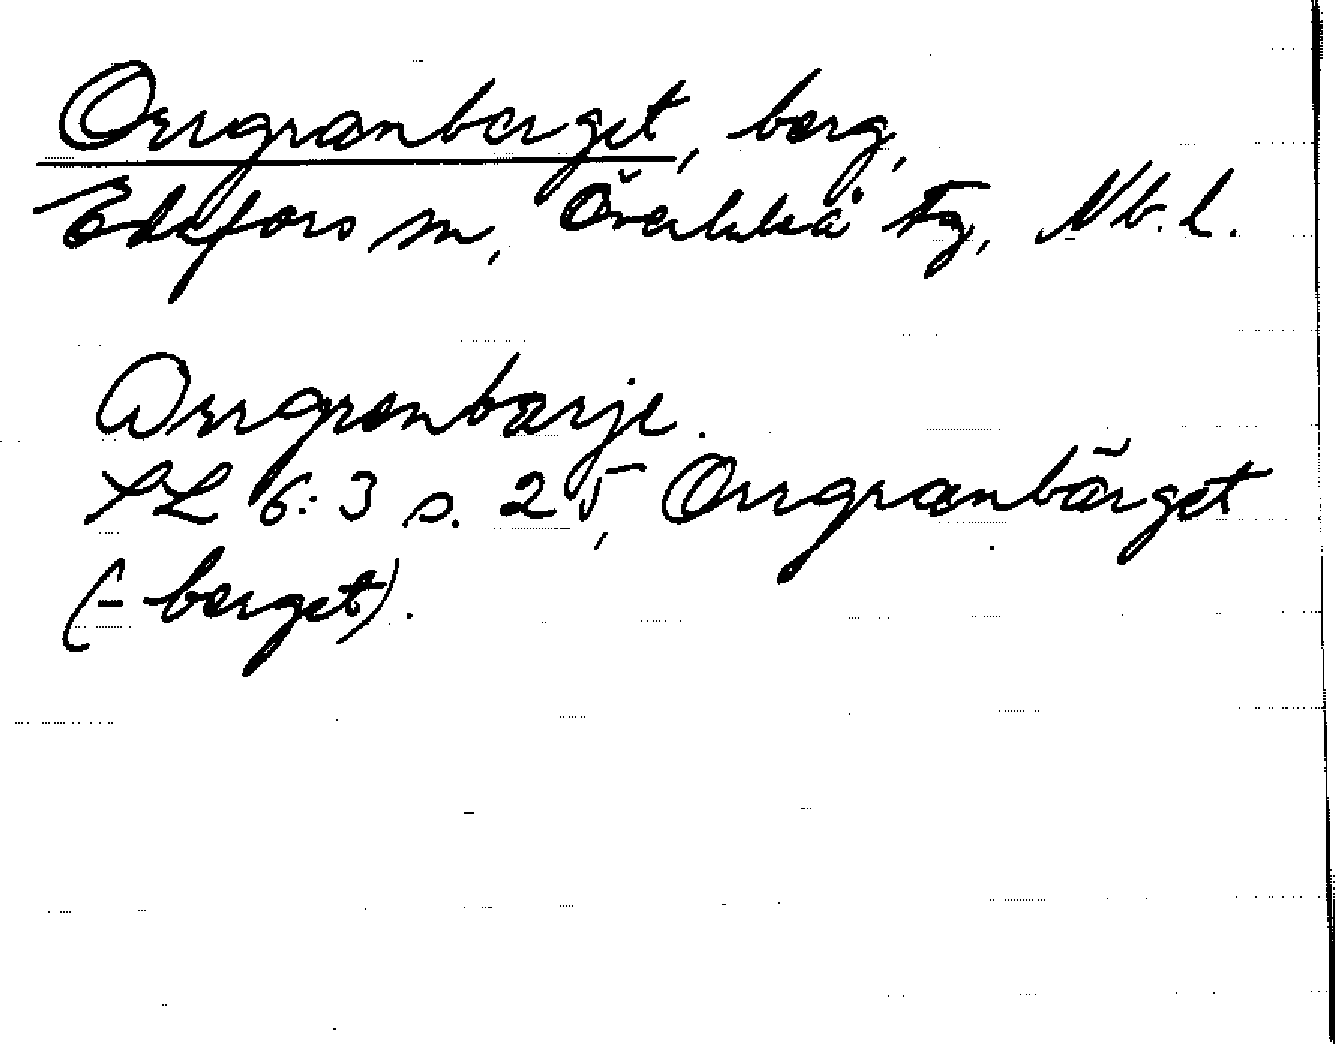 Orrgranberget, berg,
Edefors sn, Överluleå tg, Nb.l.
Orrgranbärje.
SL 6:3 s. 25, Orrgranbärget
(-berget).